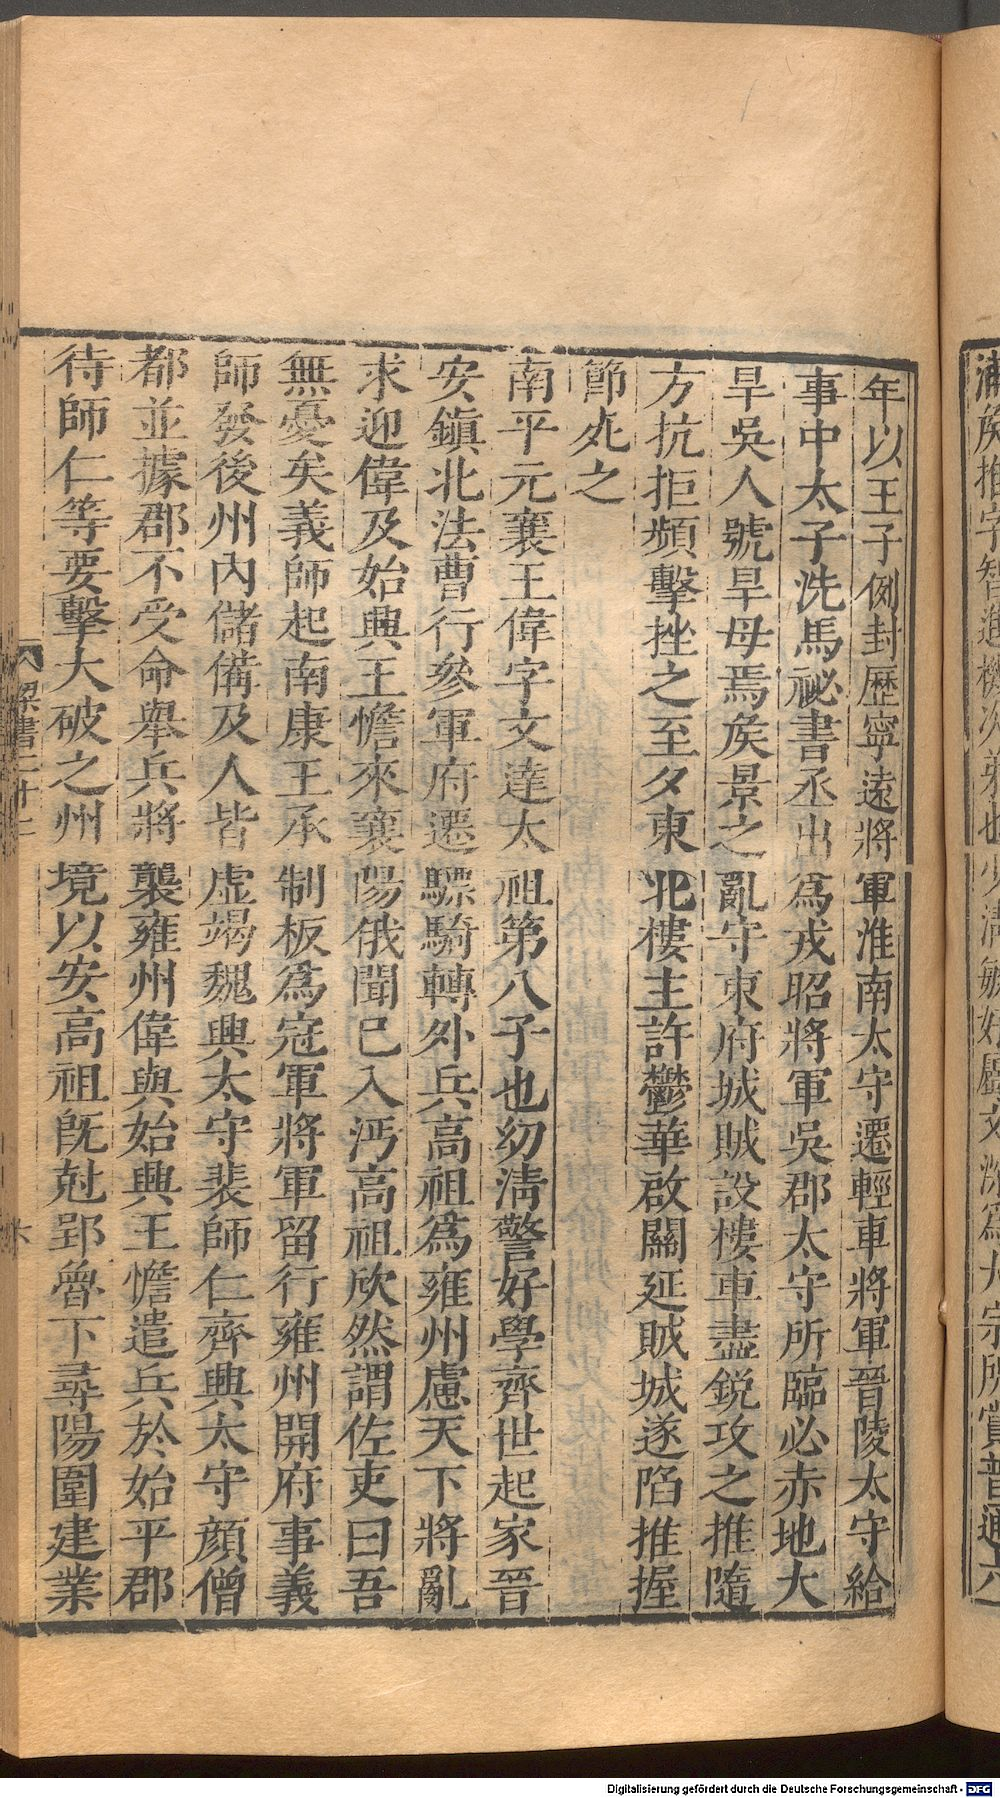 年以王子例封歷寧遠將軍淮南太守遷輕車將軍晉陵太守給
事中太子洗馬祕書丞出爲戎昭將軍吳郡太守所臨必赤地大
旱吳人號旱母焉矦景之亂守東府城賊設樓車盡鋭攻之推隨
方抗拒頻擊挫之至夕東北樓主許鬱華啟關延賊城遂陷推握
節死之
南平元襄王偉字文達太祖第八子也幼清警好學齊世起家晉
安鎭北法曹行參軍府遷驃騎轉外兵高祖爲雍州慮天下將亂
求迎偉及始興王憺來襄陽俄聞已入沔高祖欣然謂佐吏曰吾
無憂矣義師起南康王承制板爲冠軍將軍留行雍州開府事義
師發後州內儲備及人皆虛竭魏興太守裴師仁齊興太守顔僧
都並據郡不受命舉兵將襲雍州偉與始興王憺遣兵於始平郡
待師仁等要擊大破之州境以安高祖旣尅郢魯下尋陽圍建業
梁書二十二
Digitalisierung gefördert durch die Deutsche Forschungsgemeinschaft - DFG